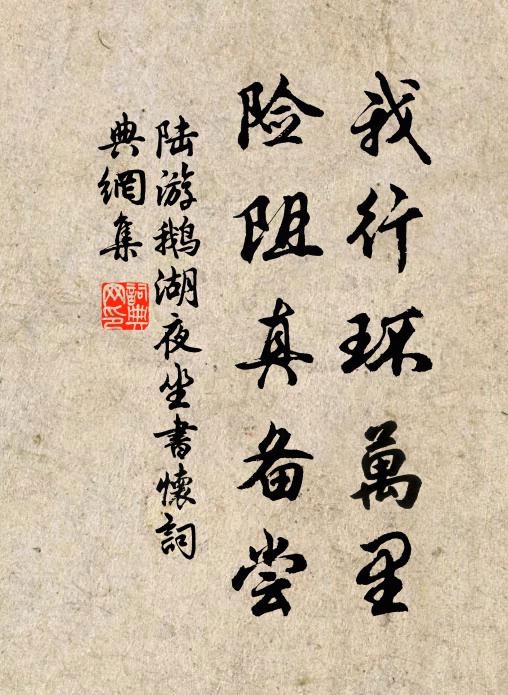 我行环萬里
险阻真备尝
陆游鹅湖夜坐書懷詞
典網集
詞典网印